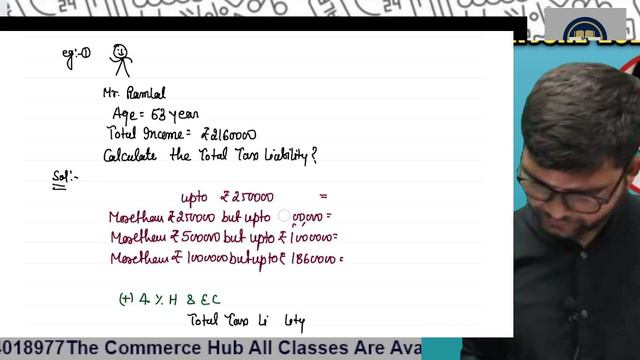 eg:-①
Mr. Ramlal
Age = 63 year
Total Income = ₹2160000
Calculate the Total Tax Liability?
Sol:-
upto ₹250000 =
Morethem ₹250000 but upto 00000=
Morethem ₹500000 but upto ₹1000000=
Morethem ₹1000000 but upto ₹1860000=
(+) 4 % H & EC
Total Tax Li lity
4018977The Commerce Hub All Classes Are Ava